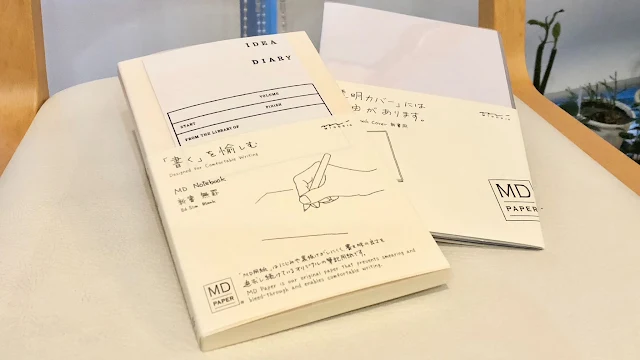 IDEA
DIARY
VOLUME
START
FINISH
FROM THE LIBRARY OF
「書く」を愉しむ
Designed for Comfortable Writing
MD Notebook
新書 無罫
B6 Slim Blank
「MD用紙」はにじみや裏抜けがしにくく、書き味の良さを
追求し続けているオリジナルの筆記用紙です。
MD Paper is our original paper that prevents smearing and
bleed-through and enables comfortable writing.
MD
PAPER
明カバー」には
由があります。
MD Cover 新書用
MD
PAPER